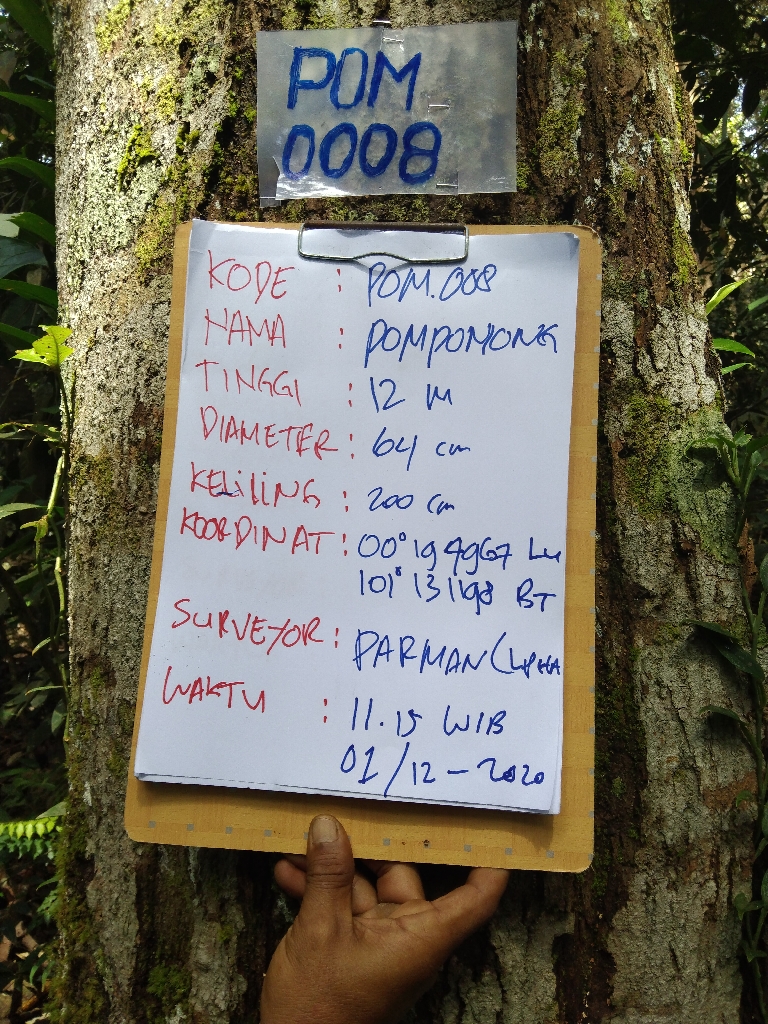 POM
0008
KODE : POM.008
NAMA : POMPONIONG
TINGGI : 12 M
DIAMETER : 64 cm
KELILING : 200 cm
KOORDINAT : 00° 194967 LU
101° 131198 BT
SURVEYOR : PARMAN (LPHA
WAKTU : 11.15 WIB
01/12-2020